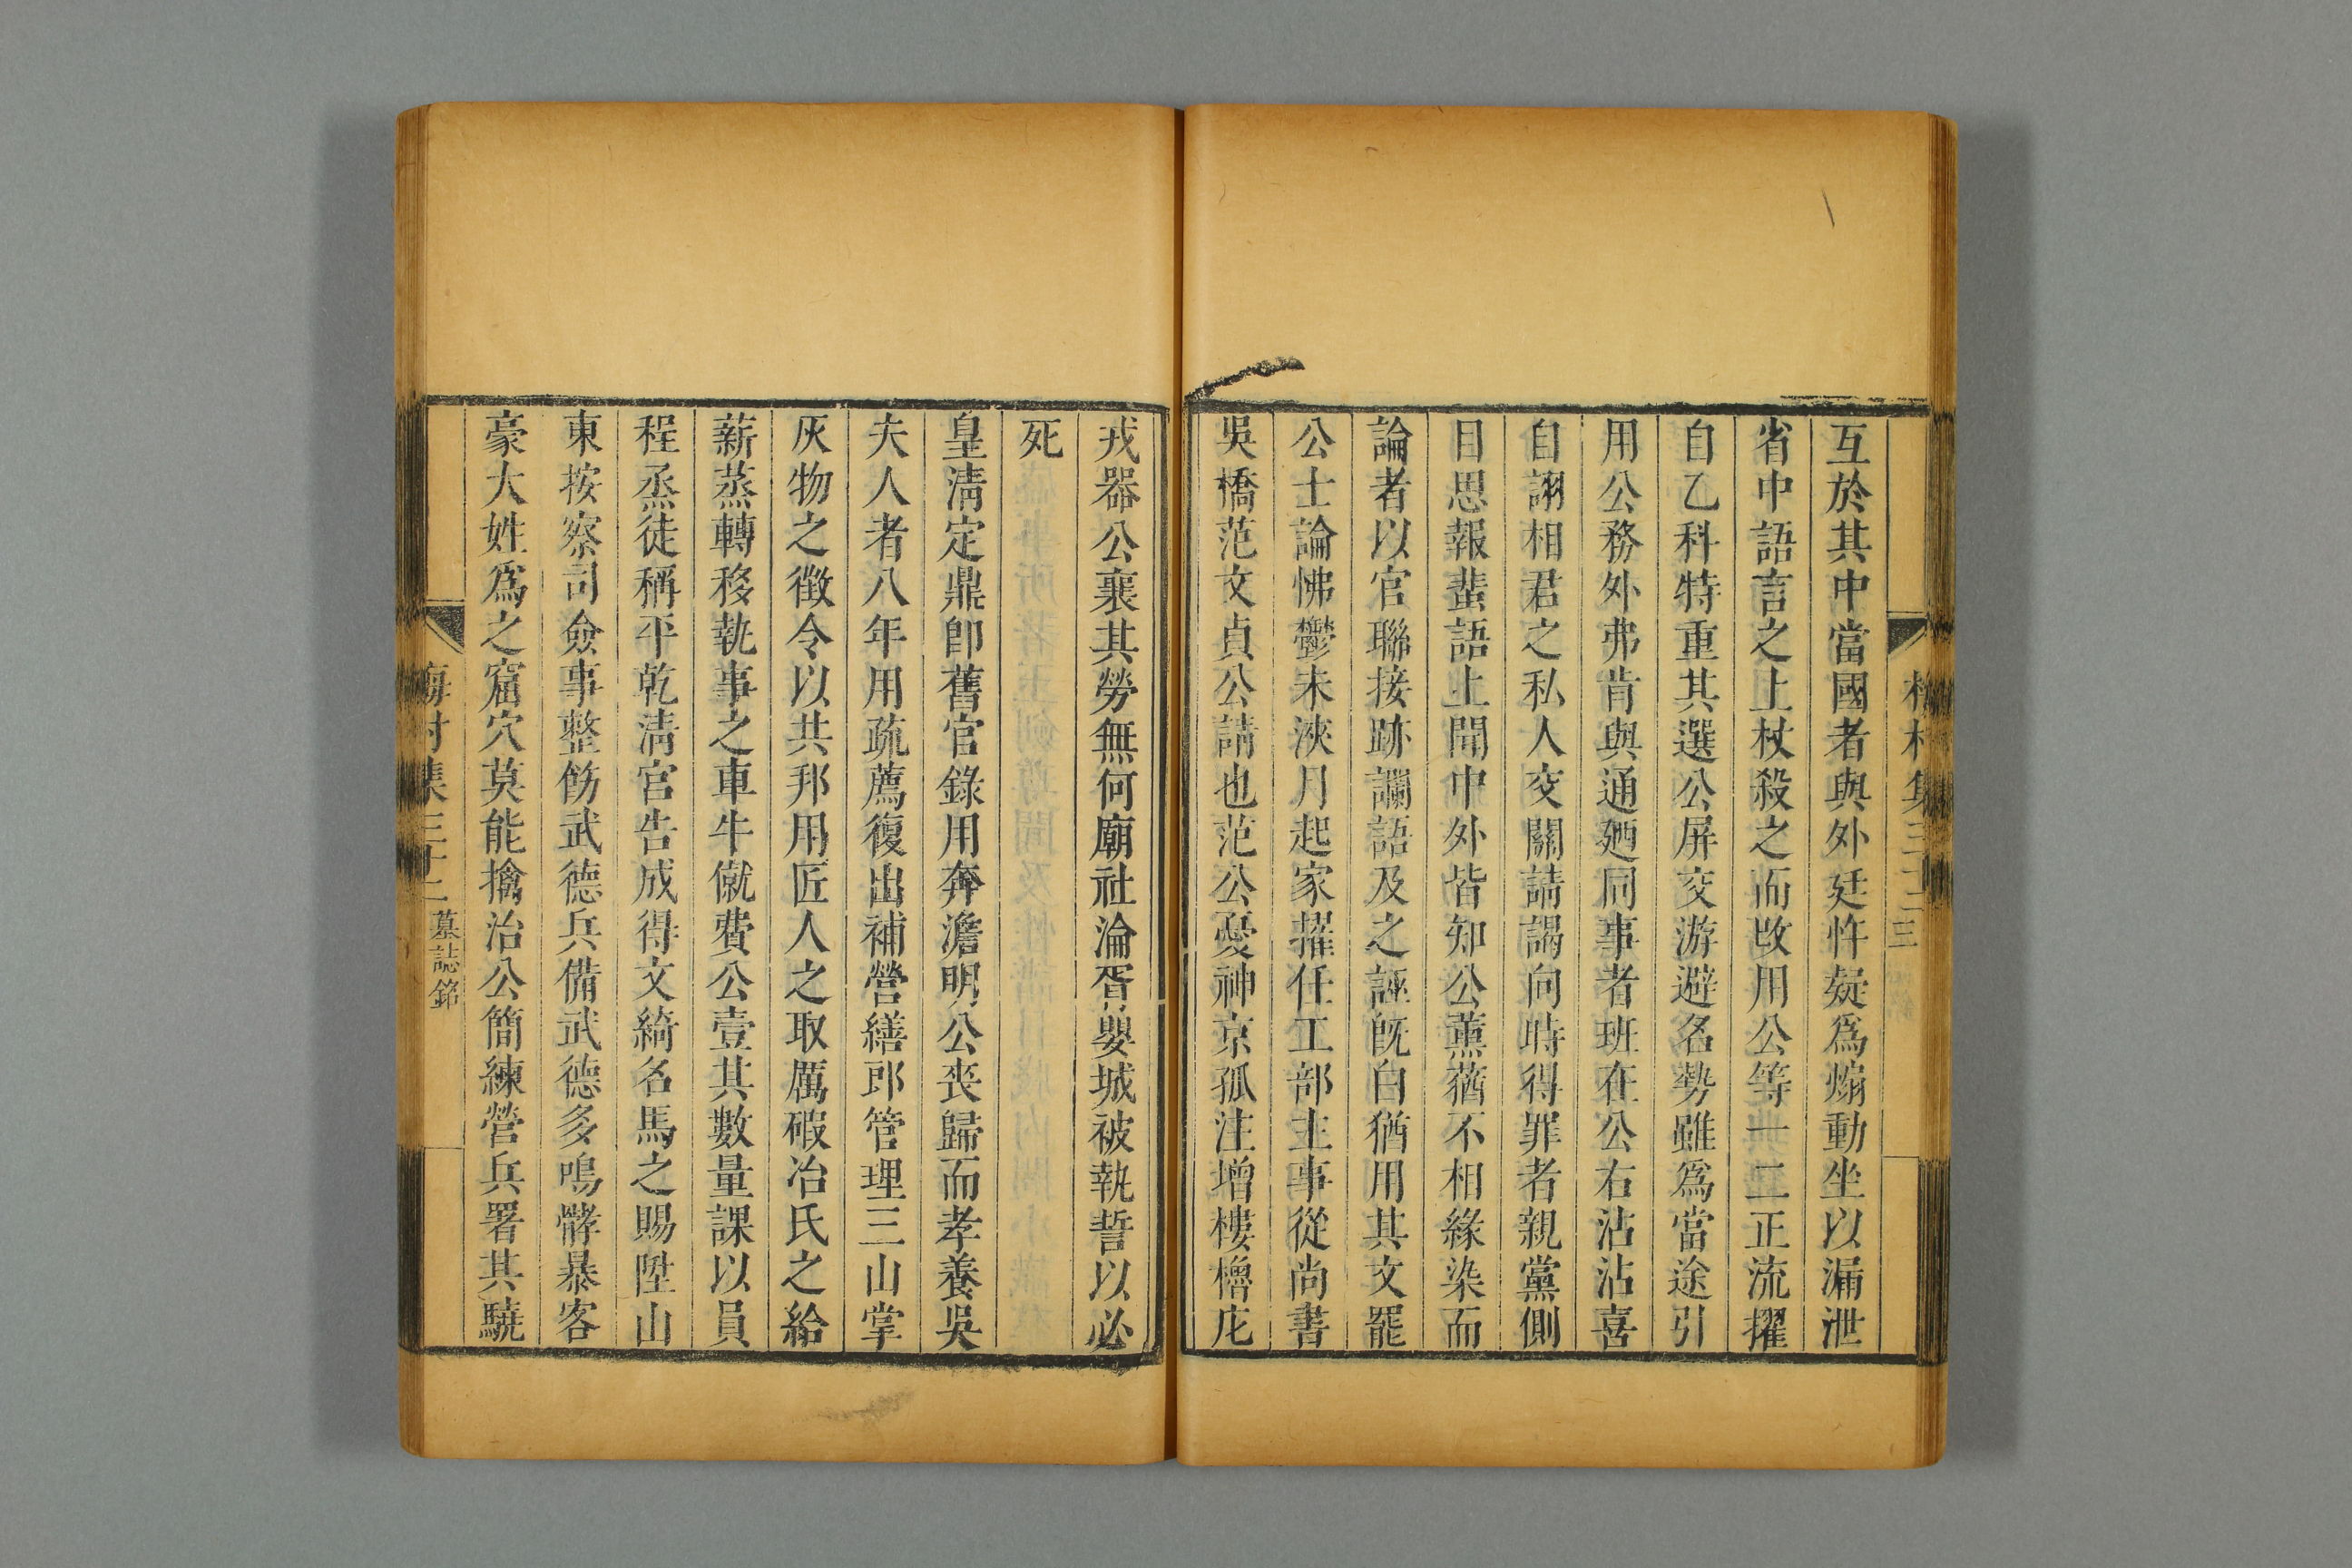 互於其中當國者與外廷忤疑爲煽動坐以漏泄
省中語言之上杖殺之而改用公等一二正流擢
自乙科特重其選公屏交游避名勢雖爲當途引
用公務外弗肯與通廼同事者班在公右沾沾喜
自詡相君之私人交關請謁向時得罪者親黨側
目思報蜚語上聞中外皆知公薰蕕不相緣染而
論者以官聯接跡讕語及之誣旣白猶用其文罷
公士論怫鬱未浹月起家擢任工部主事從尚書
吳橋范文貞公請也范公憂神京孤注增樓櫓庀
戎器公襄其勞無何廟社淪胥嬰城被執誓以必
死
皇淸定鼎卽舊官錄用奔澹明公喪歸而孝養吳
夫人者八年用疏薦復出補營繕郎管理三山掌
灰物之徵令以共邦用匠人之取厲碬冶氏之給
薪蒸轉移執事之車牛僦費公壹其數量課以員
程烝徒稱平乾淸宮告成得文綺名馬之賜陞山
東按察司僉事整飭武德兵備武德多鳴髇暴客
豪大姓爲之窟穴莫能擒治公簡練營兵署其驍
梅村集三十二
墓誌銘
三